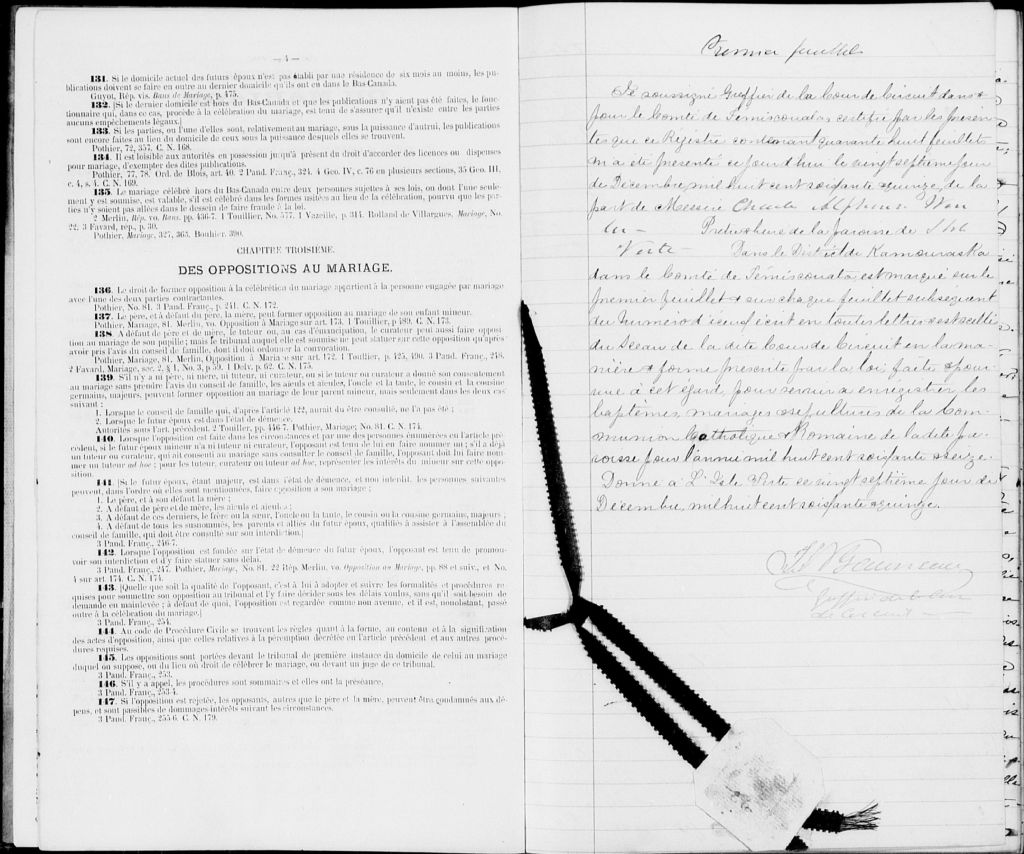 — 4 —
131. Si le domicile actuel des futurs époux n'est pas établi par une résidence de six mois au moins, les pu-
blications doivent se faire en outre au dernier domicile qu'ils ont eu dans le Bas-Canada.
Guyot, Rép. vis. Bans de Mariage, p. 475.
132. [Si le dernier domicile est hors du Bas-Canada et que les publications n'y aient pas été faites, le fonc-
tionnaire qui, dans ce cas, procède à la célébration du mariage, est tenu de s'assurer qu'il n'existe entre les parties
aucuns empêchements légaux.]
133. Si les parties, ou l'une d'elles sont, relativement au mariage, sous la puissance d'autrui, les publications
sont encore faites au lieu du domicile de ceux sous la puissance desquels elles se trouvent.
Pothier, 72, 357. C. N. 168.
134. Il est loisible aux autorités en possession jusqu'à présent du droit d'accorder des licences ou dispenses
pour mariage, d'exempter des dites publications.
Pothier, 77, 78. Ord. de Blois, art. 40. 2 Pand. Franç., 324. 4 Geo. IV, c. 76 en plusieurs sections, 35 Geo. III,
c. 4, s. 4. C. N. 169.
135. Le mariage célébré hors du Bas-Canada entre deux personnes sujettes à ses lois, ou dont l'une seule-
ment y est soumise, est valable, s'il est célébré dans les formes usitées au lieu de la célébration, pourvu que les par-
ties n'y soient pas allées dans le dessein de faire fraude à la loi.
2 Merlin, Rép. vo. Bans. pp. 436-7. 1 Toullier, No. 577. 1 Vazeille, p. 314. Rolland de Villargues, Mariage, No.
22. 3 Favard, rép., p. 30.
Pothier, Mariage, 327, 363. Bouhier. 390.
CHAPITRE TROISIÈME.
DES OPPOSITIONS AU MARIAGE.
136. Le droit de former opposition à la célébration du mariage appartient à la personne engagée par mariage
avec l'une des deux parties contractantes.
Pothier, No. 81. 3 Pand. Franç., p. 241. C. N. 172.
137. Le père, et à défaut du père, la mère, peut former opposition au mariage de son enfant mineur.
Pothier, Mariage, 81. Merlin, vo. Opposition à Mariage sur art. 173. 1 Toullier, p. 489. C. N. 173.
138. A défaut de père et de mère, le tuteur ou, au cas d'émancipation, le curateur peut aussi faire opposi-
tion au mariage de son pupille; mais le tribunal auquel elle est soumise ne peut statuer sur cette opposition qu'après
avoir pris l'avis du conseil de famille, dont il doit ordonner la convocation.
Pothier, Mariage, 81. Merlin, Opposition à Mariage sur art. 172. 1 Toullier, p. 425, 490. 3 Pand. Franç., 248.
2 Favard, Mariage, sec. 2, § 1, No. 3, p 59. 1 Delv. p. 62. C. N. 175.
139. S'il n'y a ni père, ni mère, ni tuteur, ni curateur, ou si le tuteur ou curateur a donné son consentement
au mariage sans prendre l'avis du conseil de famille, les aïeuls et aïeules, l'oncle et la tante, le cousin et la cousine
germains, majeurs, peuvent former opposition au mariage de leur parent mineur, mais seulement dans les deux cas
suivant :
1. Lorsque le conseil de famille qui, d'après l'article 122, aurait du être consulté, ne l'a pas été ;
2. Lorsque le futur époux est dans l'état de démence.
Autorités sous l'art. précédent. 2 Touiller, pp. 446-7. Pothier, Mariage, No. 81. C. N. 174.
140. Lorsque l'opposition est faite dans les circonstances et par une des personnes énumérées en l'article pré-
cédent, si le futur époux mineur n'a ni tuteur ni curateur, l'opposant est tenu de lui en faire nommer un ; s'il a déjà
un tuteur ou curateur, qui ait consenti au mariage sans consulter le conseil de famille, l'opposant doit lui faire nom-
mer un tuteur ad hoc ; pour les tuteur, curateur ou tuteur ad hoc, représenter les intérêts du mineur sur cette oppo-
sition.
141. [Si le futur époux, étant majeur, est dans l'état de démence, et non interdit, les personnes suivantes
peuvent, dans l'ordre où elles sont mentionnées, faire opposition à son mariage ;
1. Le père, et à son défaut la mère ;
2. A défaut de père et de mère, les aïeuls et aïeules ;
3. A défaut de ces derniers, le frère ou la sœur, l'oncle ou la tante, le cousin ou la cousine germains, majeurs ;
4. A défaut de tous les susnommés, les parents et alliés du futur époux, qualifiés à assister à l'assemblée du
conseil de famille, qui doit être consulté sur son interdiction.]
3 Pand. Franç., 246-7.
142. Lorsque l'opposition est fondée sur l'état de démence du futur époux, l'opposant est tenu de promou-
voir son interdiction et d'y faire statuer sans délai.
3 Pand. Franç., 247. Pothier, Mariage, No. 81. 22 Rép. Merlin, vo. Opposition au Mariage, pp. 88 et suiv., et No.
4 sur art. 174. C. N. 174.
143. [Quelque soit la qualité de l'opposant, c'est à lui à adopter et suivre les formalités et procédures re-
quises pour soumettre son opposition au tribunal et l'y faire décider sous les délais voulus, sans qu'il soit besoin de
demande en mainlevée ; à défaut de quoi, l'opposition est regardée comme non avenue, et il est, nonobstant, passé
outre à la célébration du mariage.]
3 Pand. Franç., 254.
144. Au code de Procédure Civile se trouvent les règles quant à la forme, au contenu et à la signification
des actes d'opposition, ainsi que celles relatives à la péremption décrétée en l'article précédent et aux autres procé-
dures requises.
145. Les oppositions sont portées devant le tribunal de première instance du domicile de celui au mariage
duquel on suppose, ou du lieu où droit de célébrer le mariage, ou devant un juge de ce tribunal.
3 Pand. Franç., 253.
146. S'il y a appel, les procédures sont sommaires et elles ont la préséance.
3 Pand. Franç., 253-4.
147. Si l'opposition est rejetée, les opposants, autres que le père et la mère, peuvent être condamnés aux dé-
pens, et sont passibles de dommages intérêts suivant les circonstances.
3 Pand. Franç., 255-6. C. N. 179.
Premier feuillet
Je soussigné Greffier de la Cour de Circuit dans &
pour le Comté de Témiscouata, certifie par les présen-
tes que ce Régistre contenant quarante huit feuillets
m'a été présenté ce jourd'hui le vingt septième jour
de Décembre, mil huit cent soixante & quinze, de la
part de Messire Charles Alphonse
Prêtre & curé de la paroisse de L'Isle
Verte Dans le District de Kamouraska
dans le Comté de Témiscouata, est marqué sur le
premier feuillet & sur chaque feuillet subséquent
du Numéro d'icelui écrit en toutes lettres & est scellé
du Sceau de la dite Cour de Circuit en la ma-
nière & forme présenté par la loi faite & pour-
vue à cet égard, pour servir à enrégistrer les
baptêmes, mariages & sépultures de la Com-
munion Catholique & Romaine de la dite pa-
roisse pour l'année mil huit cent soixante & seize.
Donné à L'Isle Verte ce vingt septième jour de
Décembre, mil huit cent soixante & quinze.